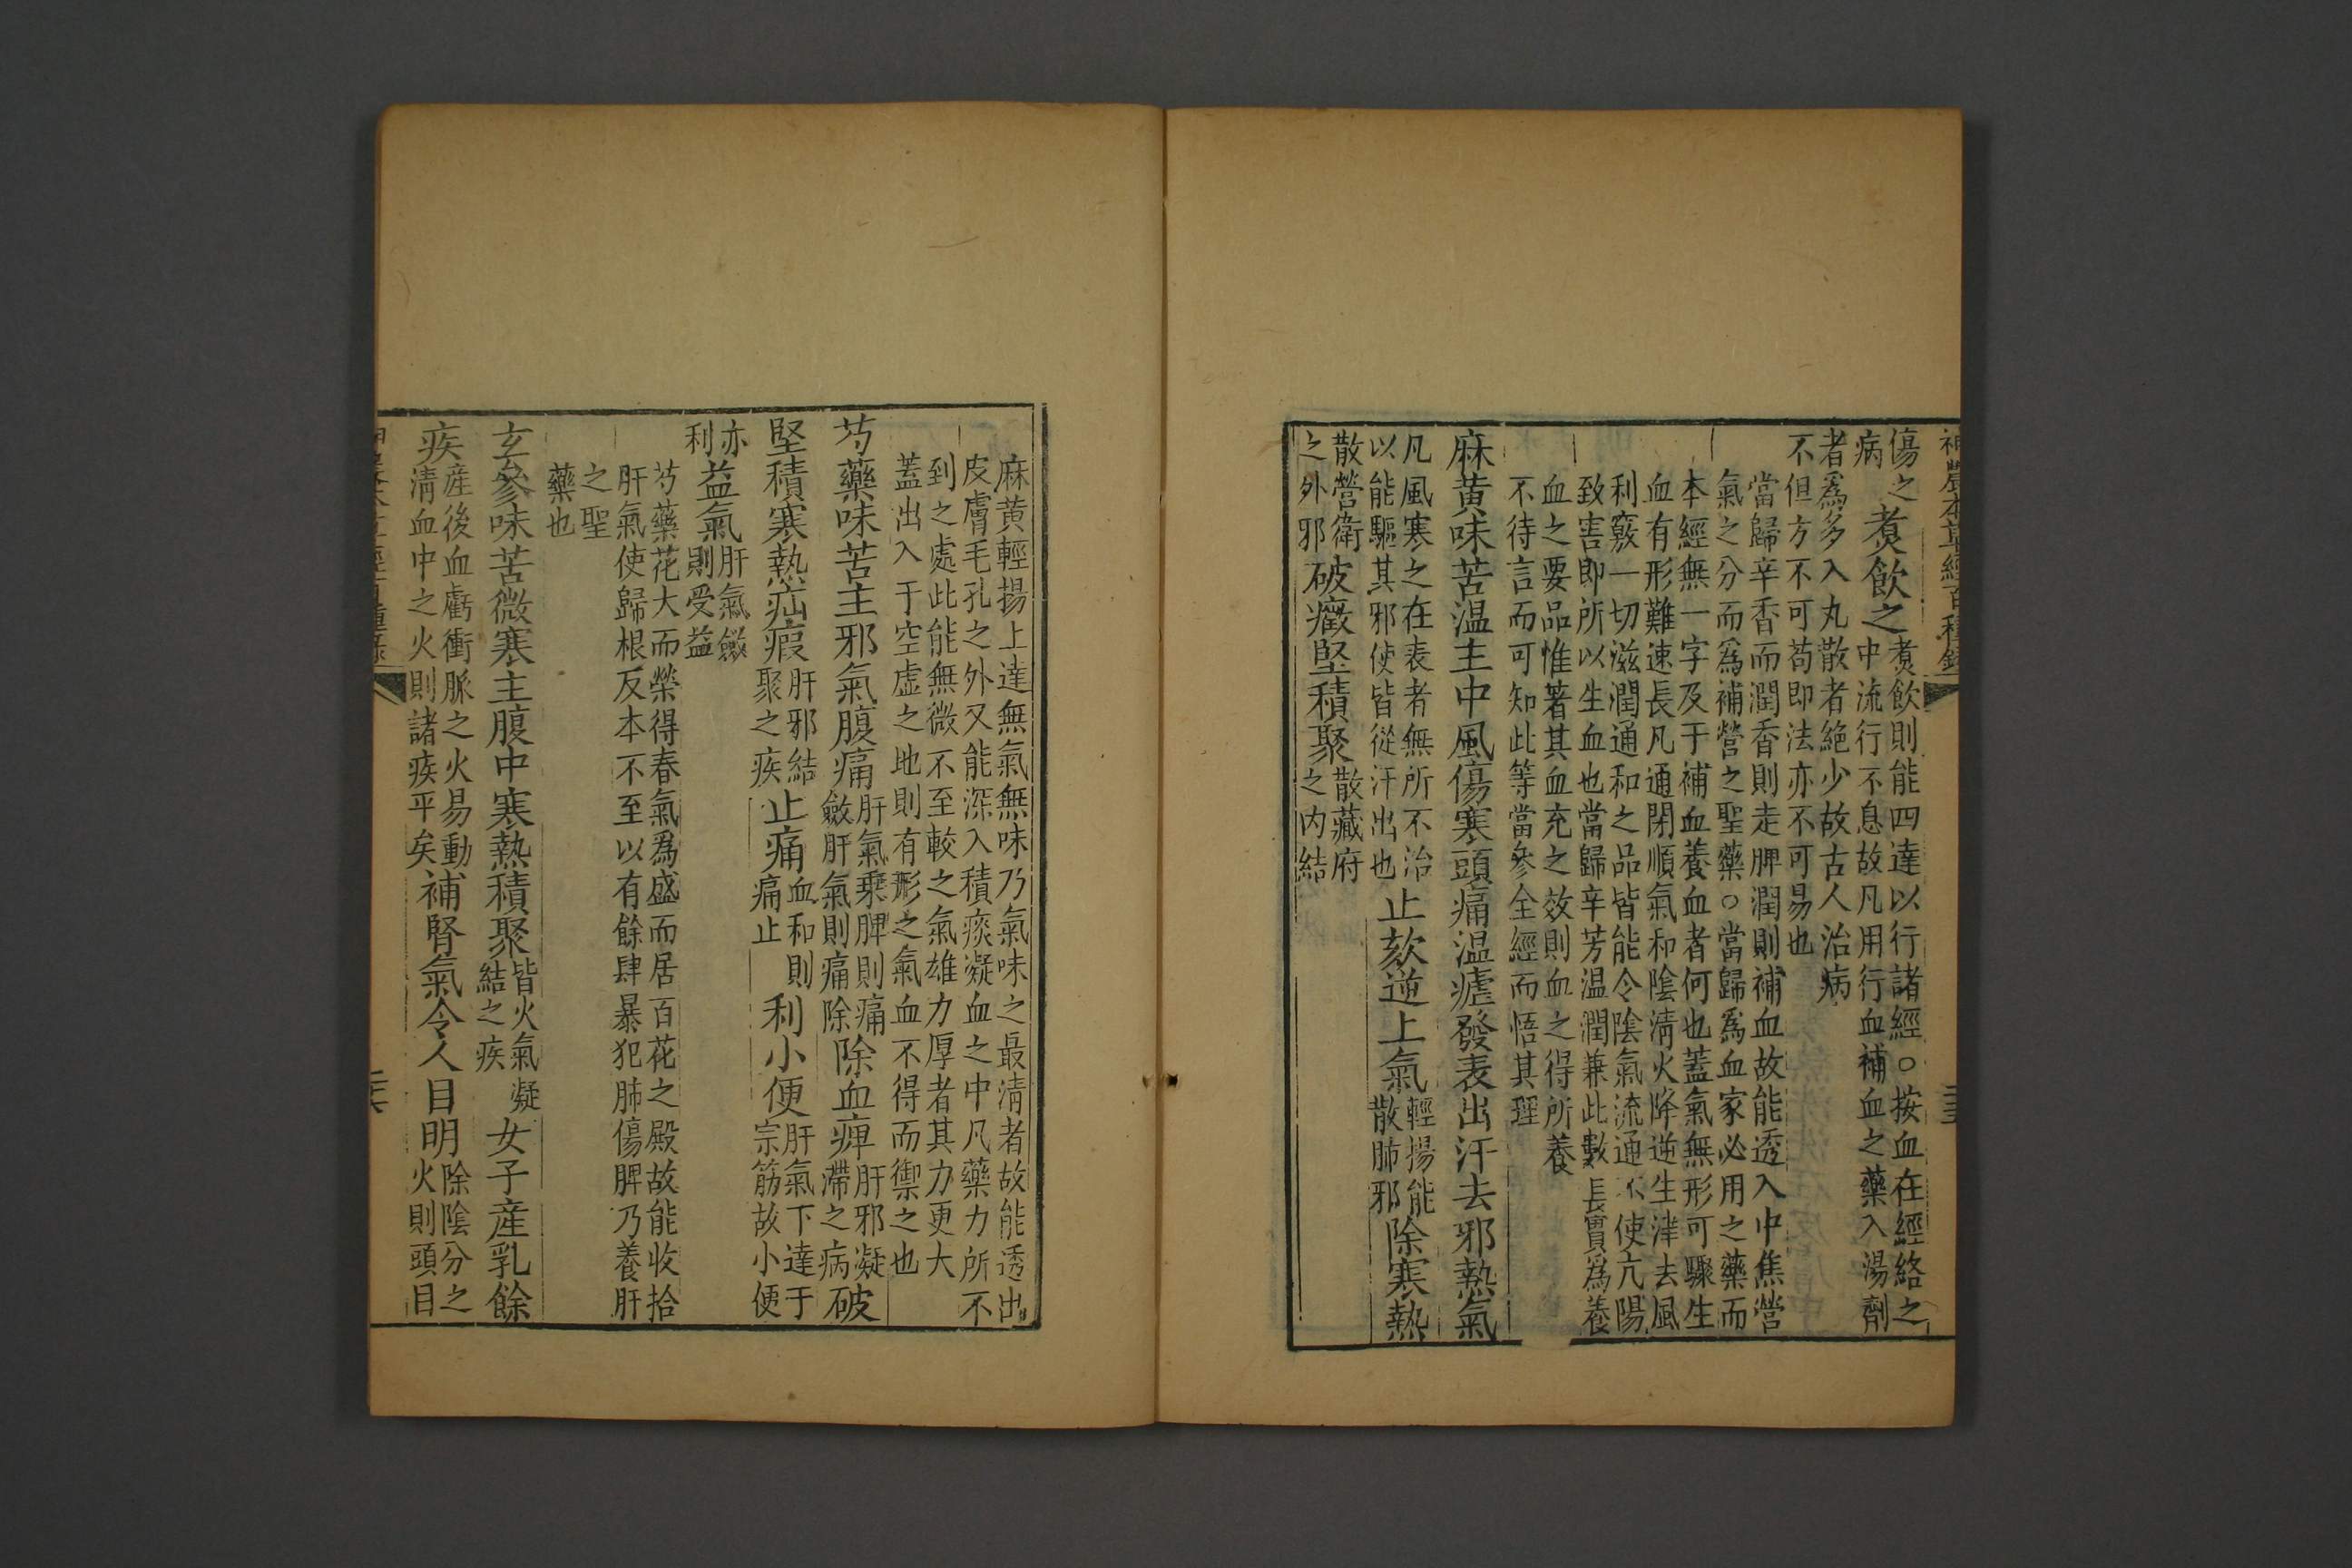 神農本草經百種錄
傷之
病
煮飲之
煮飲則能四達以行諸經○按血在經絡之
中流行不息故凡用行血補血之藥入湯劑
者爲多入丸散者絶少故古人治病
不但方不可苟即法亦不可易也
當歸辛香而潤香則走脾潤則補血故能透入中焦營
氣之分而爲補營之聖藥○當歸爲血家必用之藥而
本經無一字及于補血養血者何也蓋氣無形可驟生
血有形難速長凡通閉順氣和陰淸火降逆生津去風
利竅一切滋潤通和之品皆能令陰氣流通不使亢陽
致害即所以生血也當歸辛芳温潤兼此數長實爲養
血之要品惟著其血充之效則血之得所養
不待言而可知此等當參全經而悟其理
麻黄味苦温主中風傷寒頭痛温瘧發表出汗去邪熱氣
凡風寒之在表者無所不治
以能驅其邪使皆從汗出也
止欬逆上氣
輕揚能
散肺邪
除寒熱
散營衛
之外邪
破癥堅積聚
散藏府
之内結
麻黄輕揚上達無氣無味乃氣味之最淸者故能透出
皮膚毛孔之外又能深入積痰凝血之中凡藥力所不
到之處此能無微不至較之氣雄力厚者其力更大
蓋出入于空虛之地則有形之氣血不得而禦之也
芍藥味苦主邪氣腹痛
肝氣乘脾則痛
斂肝氣則痛除
除血痺
肝邪凝
滯之病
破
堅積寒熱疝瘕
肝邪結
聚之疾
止痛
血和則
痛止
利小便
肝氣下達于
宗筋故小便
亦
利
益氣
肝氣斂
則受益
芍藥花大而榮得春氣爲盛而居百花之殿故能收拾
肝氣使歸根反本不至以有餘肆暴犯肺傷脾乃養肝
之聖
藥也
玄參味苦微寒主腹中寒熱積聚
皆火氣凝
結之疾
女子產乳餘
疾
產後血虧衝脈之火易動
淸血中之火則諸疾平矣
補腎氣令人目明
除陰分之
火則頭目